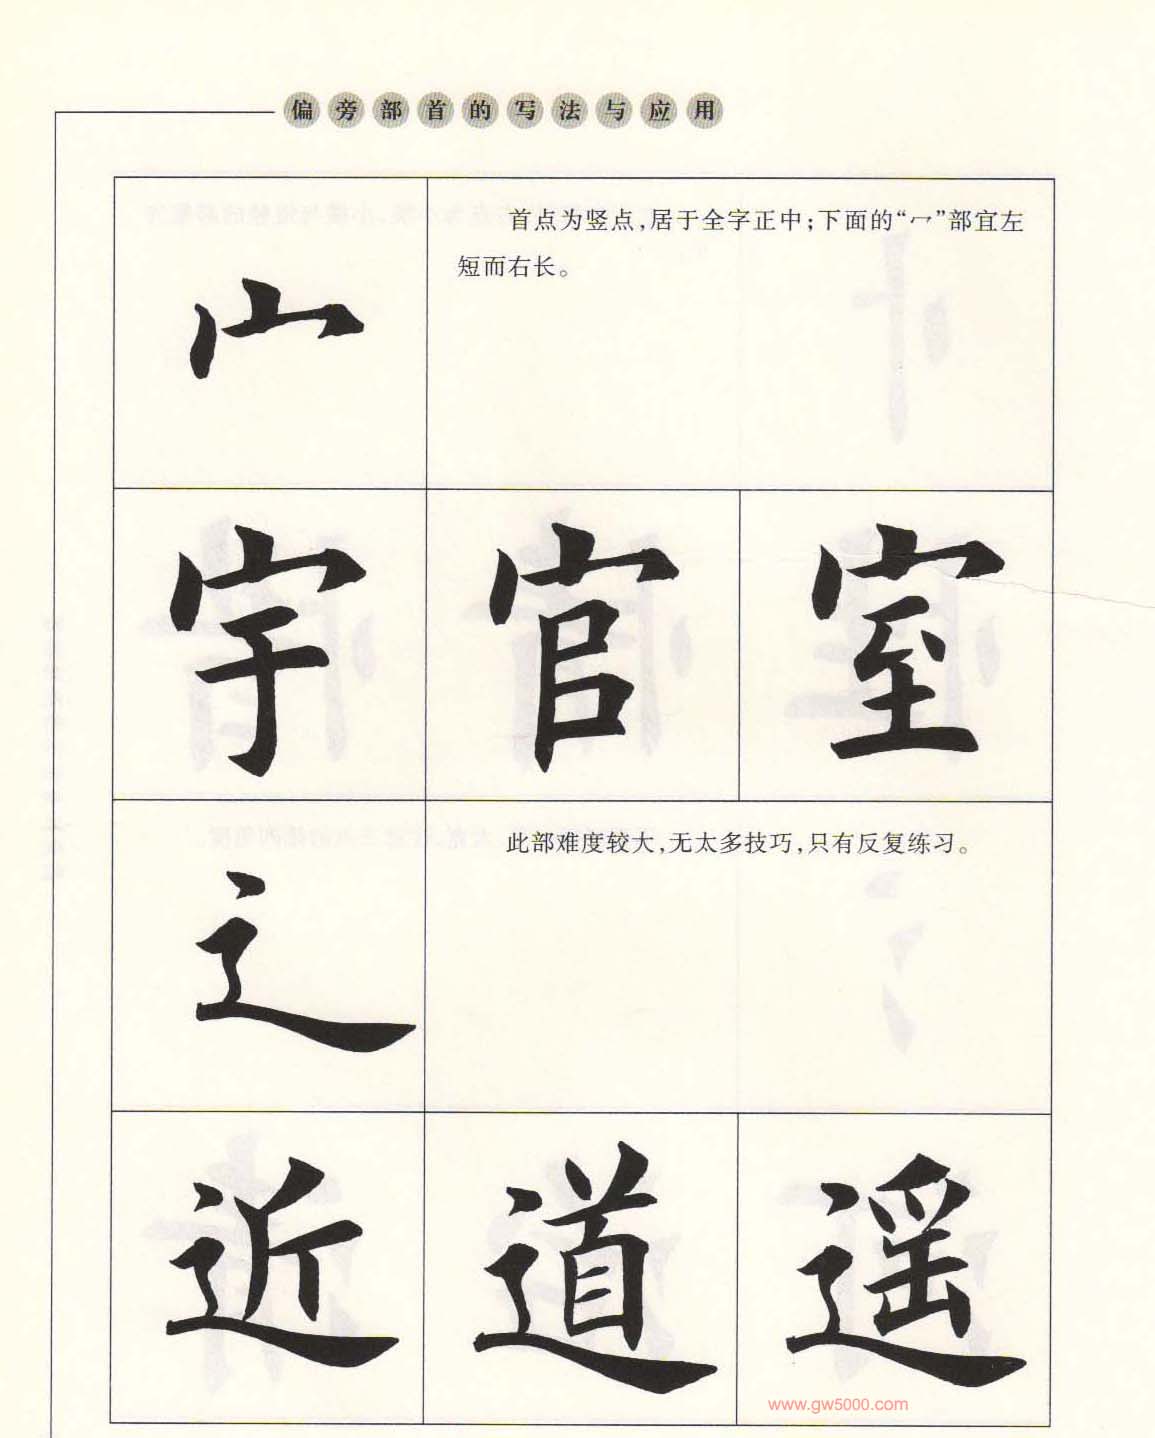 偏旁部首的写法与应用
宀
首点为竖点，居于全字正中；下面的“冖”部宜左
短而右长。
宇 官 室
辶
此部难度较大，无太多技巧，只有反复练习。
近 道 遥
www.gw5000.com